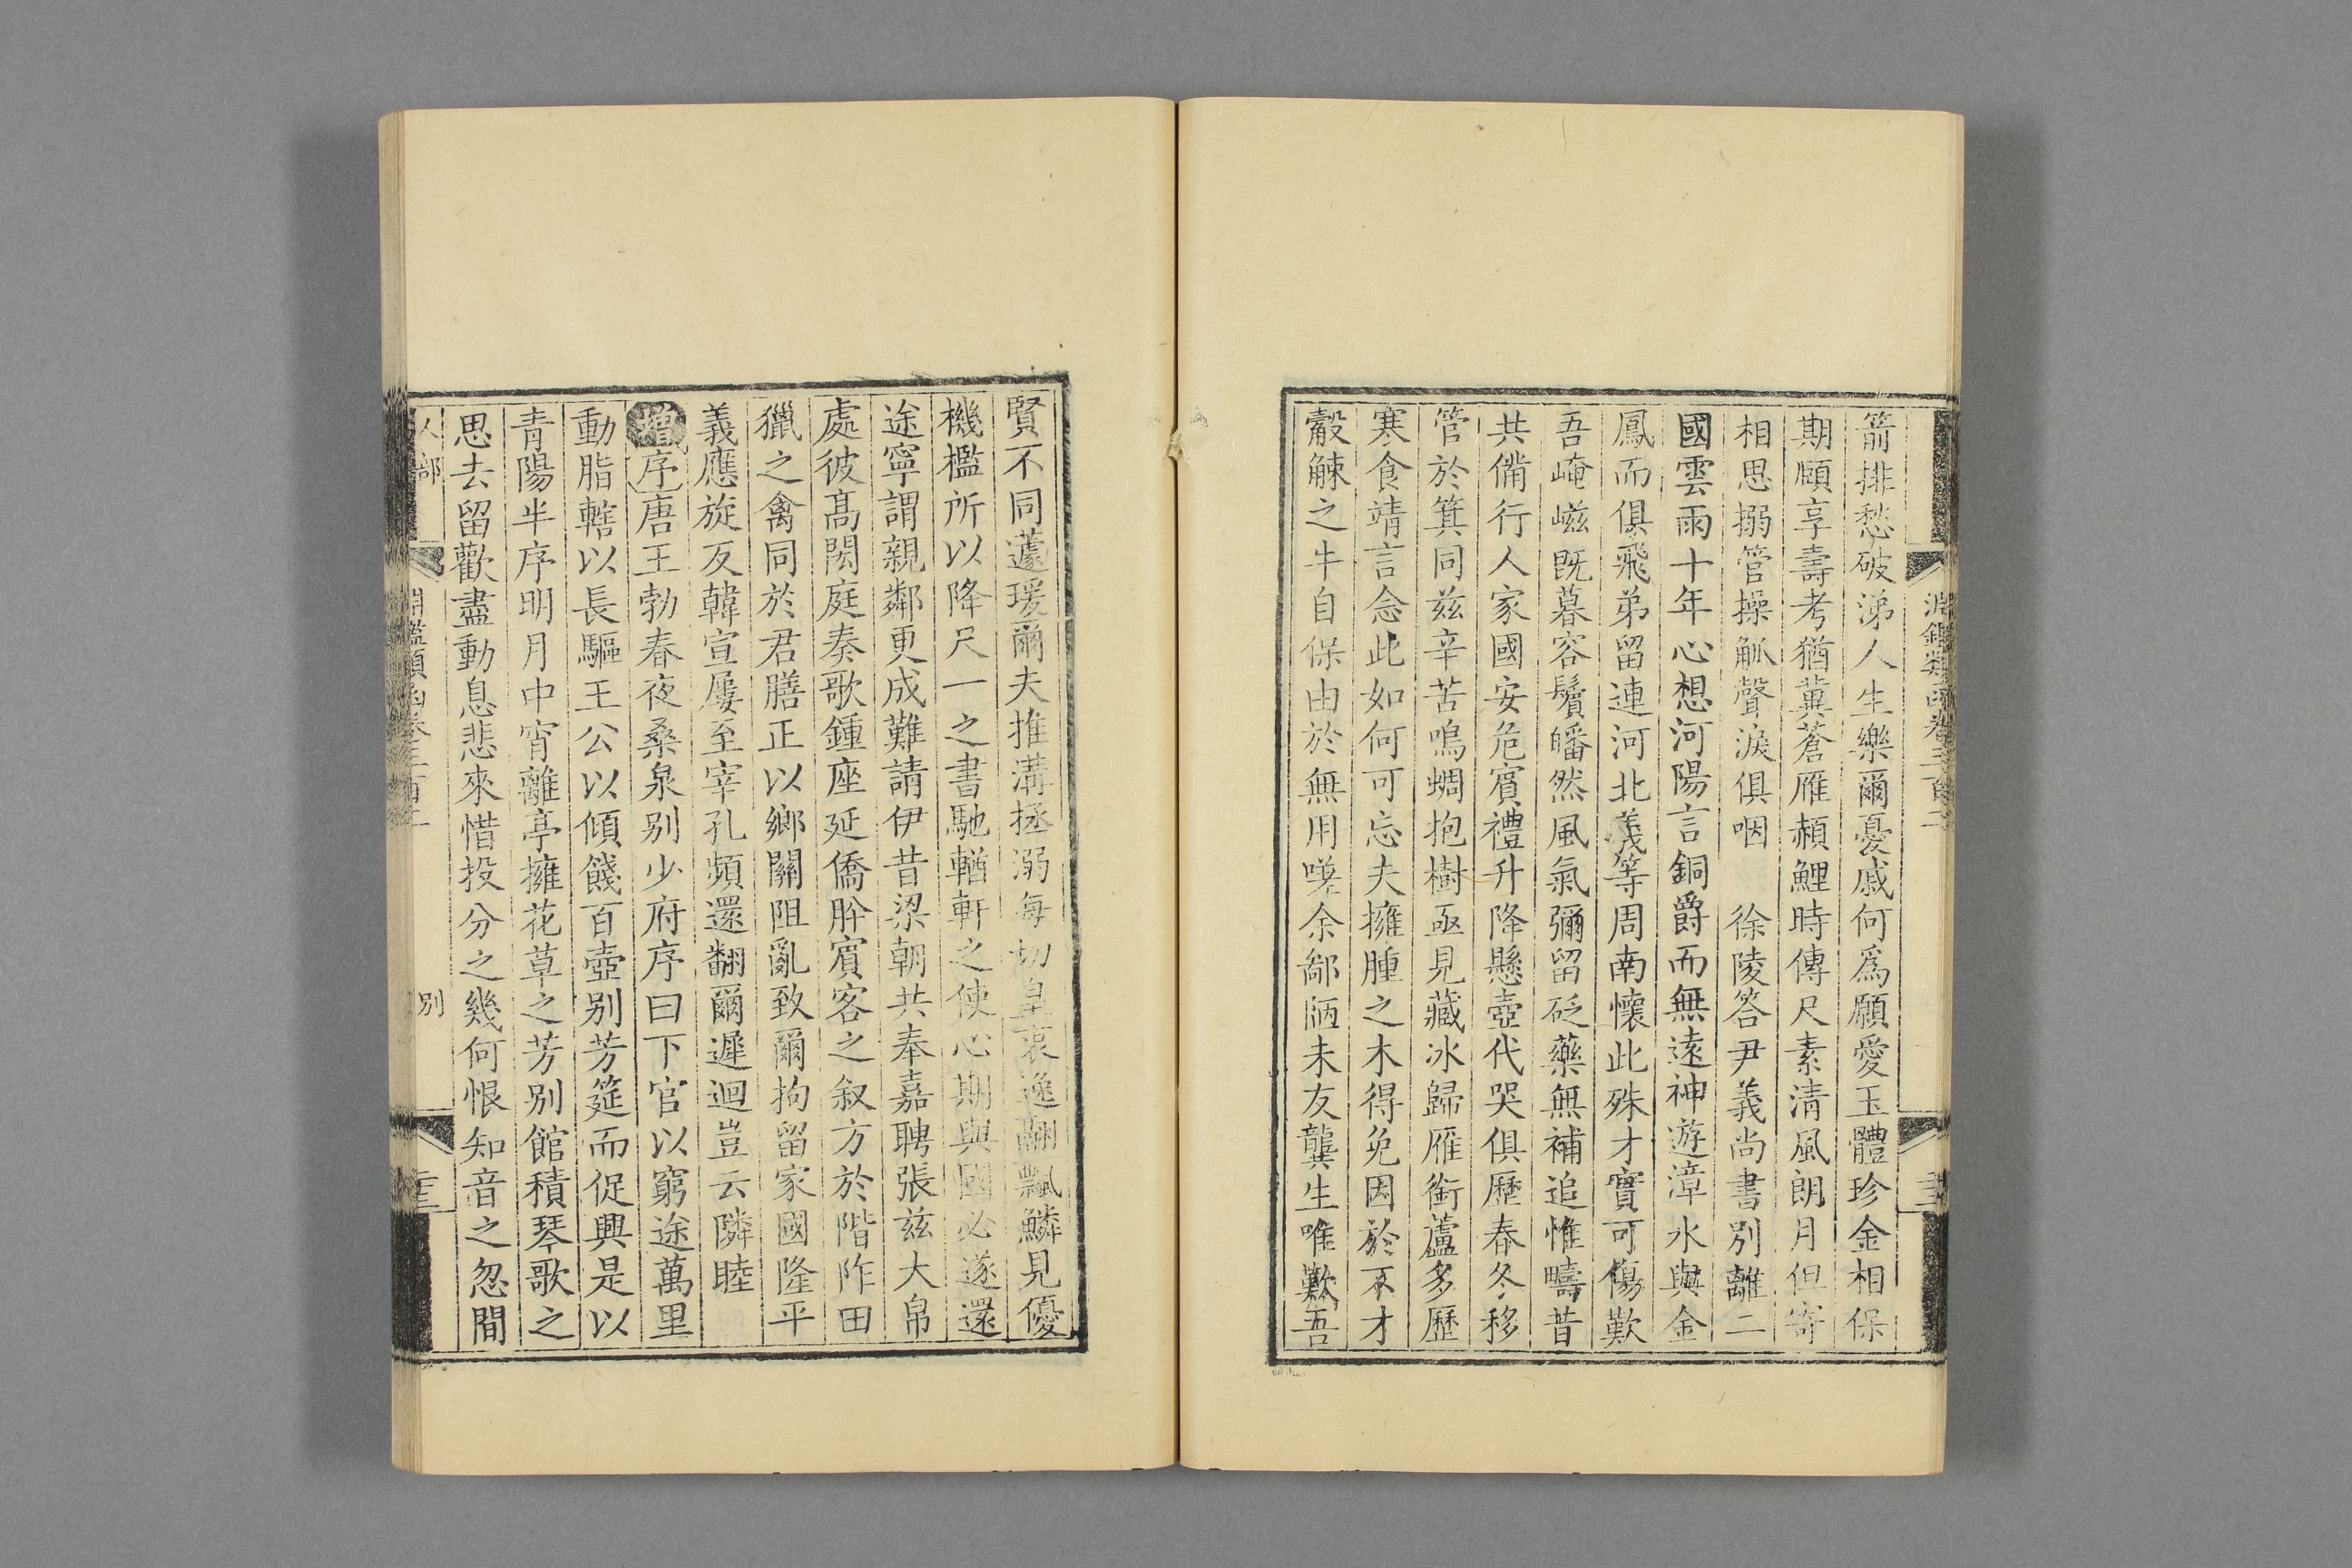 箭排愁破涕人生樂爾憂戚何爲願愛玉體珍金相保
期頤享壽考猶冀蒼雁頳鯉時傳尺素清風朗月但寄
相思搦管操觚聲淚俱咽　徐陵答尹義尚書別離二
國雲雨十年心想河陽言銅爵而無遠神遊漳水與金
鳳而俱飛弟留連河北義等周南懷此殊才實可傷歎
吾崦嵫既暮容鬢皤然風氣彌留砭藥無補追惟疇昔
共備行人家國安危賓禮升降懸壺代哭俱歷春冬移
管於箕同兹辛苦鳴蜩抱樹亟見藏冰歸雁銜蘆多歷
寒食靖言念此如何可忘夫擁腫之木得免因於不才
觳觫之牛自保由於無用嗟余鄙陋未友龔生唯歎吾
賢不同蘧瑗爾夫推溝拯溺每切皇衷逸翮飄鱗見優
機檻所以降尺一之書馳輶軒之使心期與國必遂還
途寜謂親鄰更成難請伊昔梁朝共奉嘉聘張兹大帛
處彼高閎庭奏歌鍾座延僑肸賓客之叙方於階阼田
獵之禽同於君膳正以鄉關阻亂致爾拘留家國隆平
義應旋反韓宣屢至宰孔頻還翻爾遲迴豈云隣睦
增序唐王勃春夜桑泉别少府序曰下官以窮途萬里
動脂轄以長驅王公以傾餞百壺别芳筵而促興是以
青陽半序明月中宵離亭擁花草之芳别館積琴歌之
思去留歡盡動息悲來惜投分之幾何恨知音之忽間
人部
淵鑑類函卷三百二
別